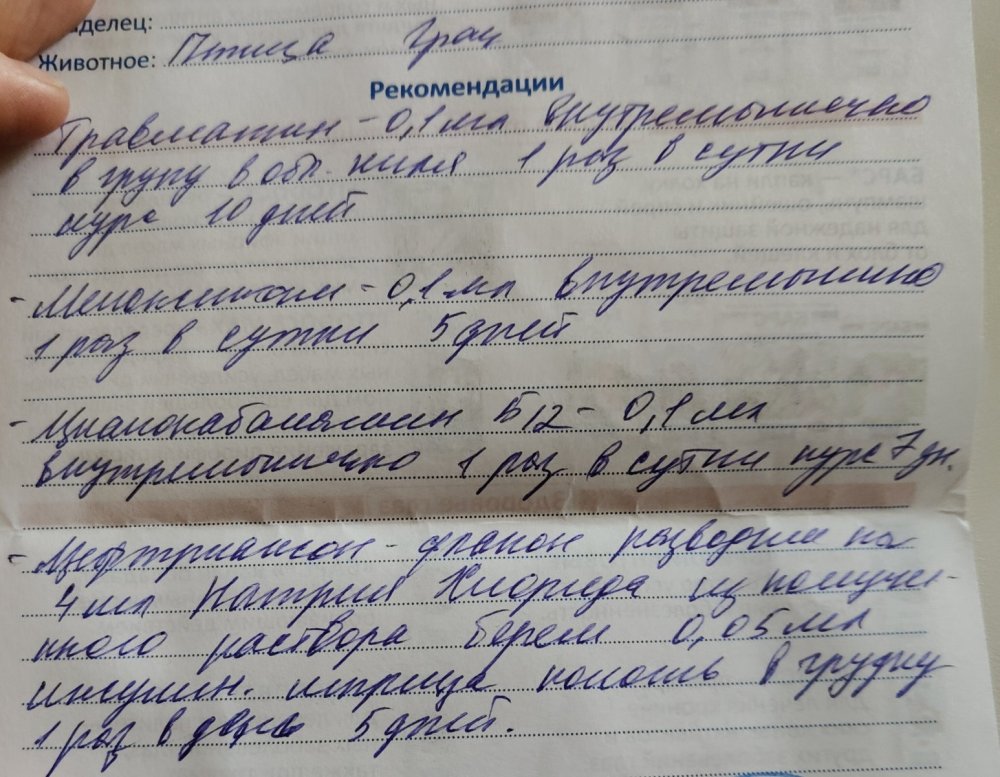 аделец:
Животное: Птица Грач
Рекомендации
Травматин - 0,1 мл внутремышечно
в груду в обл. киля 1 раз в сутки
курс 10 дней
- Мелоксикам - 0,1 мл внутремышечно
1 раз в сутки 5 дней
- Цианокабаламин Б12 - 0,1 мл
внутремышечно 1 раз в сутки курс 7 дн.
- Цефтриаксон - флакон разводим на
4 мл Натрия Хлорида из получе-
нного раствора берем 0,05 мл
инсулин. шприца колоть в грудку
1 раз в день 5 дней.